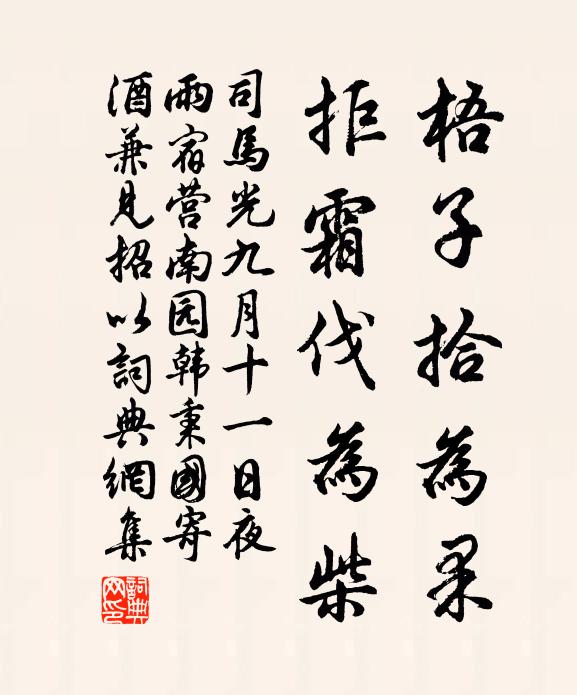 梧子拾為果
拒霜伐為柴
司馬光九月十一日夜
雨宿营南园韩秉國寄
酒兼見招以詞典網集